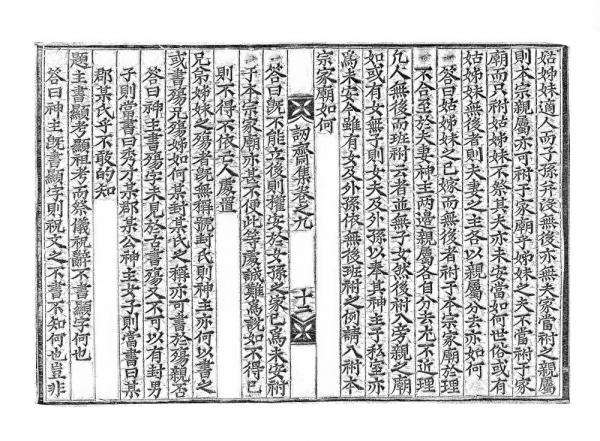 姑姊妹適人而子孫幷沒無後亦無夫家當祔之親屬
則本宗親屬亦可祔于家廟乎姊妹之夫不當祔于家
廟而只祔姑姊妹不祭其夫亦未安當如何世俗或有
姑姊妹無後者則夫妻之主各以親屬分去亦如何
答曰姑姊妹之已嫁而無後者祔于本宗家廟於理
不合至於夫妻神主兩邊親屬各自分去尤不近理
凡人無後而班祔云者並無子女然後祔入旁親之廟
如或有女無子則女夫及外孫以奉其神主于私室亦
爲未安今雖有女及外孫依無後班祔之例請入祔本
宗家廟如何
訒齋集卷之九
十二
答曰旣不能立後則權安於女孫之家已爲未安祔
于本宗家廟亦甚不便此等處誠難爲說如不得已
則不得不依亡人處置
兄弟姊妹之殤者旣無稱號封氏則神主亦何以書之
或書殤兄殤姊如何某封某氏之稱亦可書於殤親否
答曰神主書殤字未見於古書殤人不可以有封男
子則當書曰秀才某郡某公神主女子則當書曰某
郡某氏乎不敢的知
題主書顯考顯祖考而祭儀祝辭不書顯字何也
答曰神主旣書顯字則祝文之不書不知何也豈非